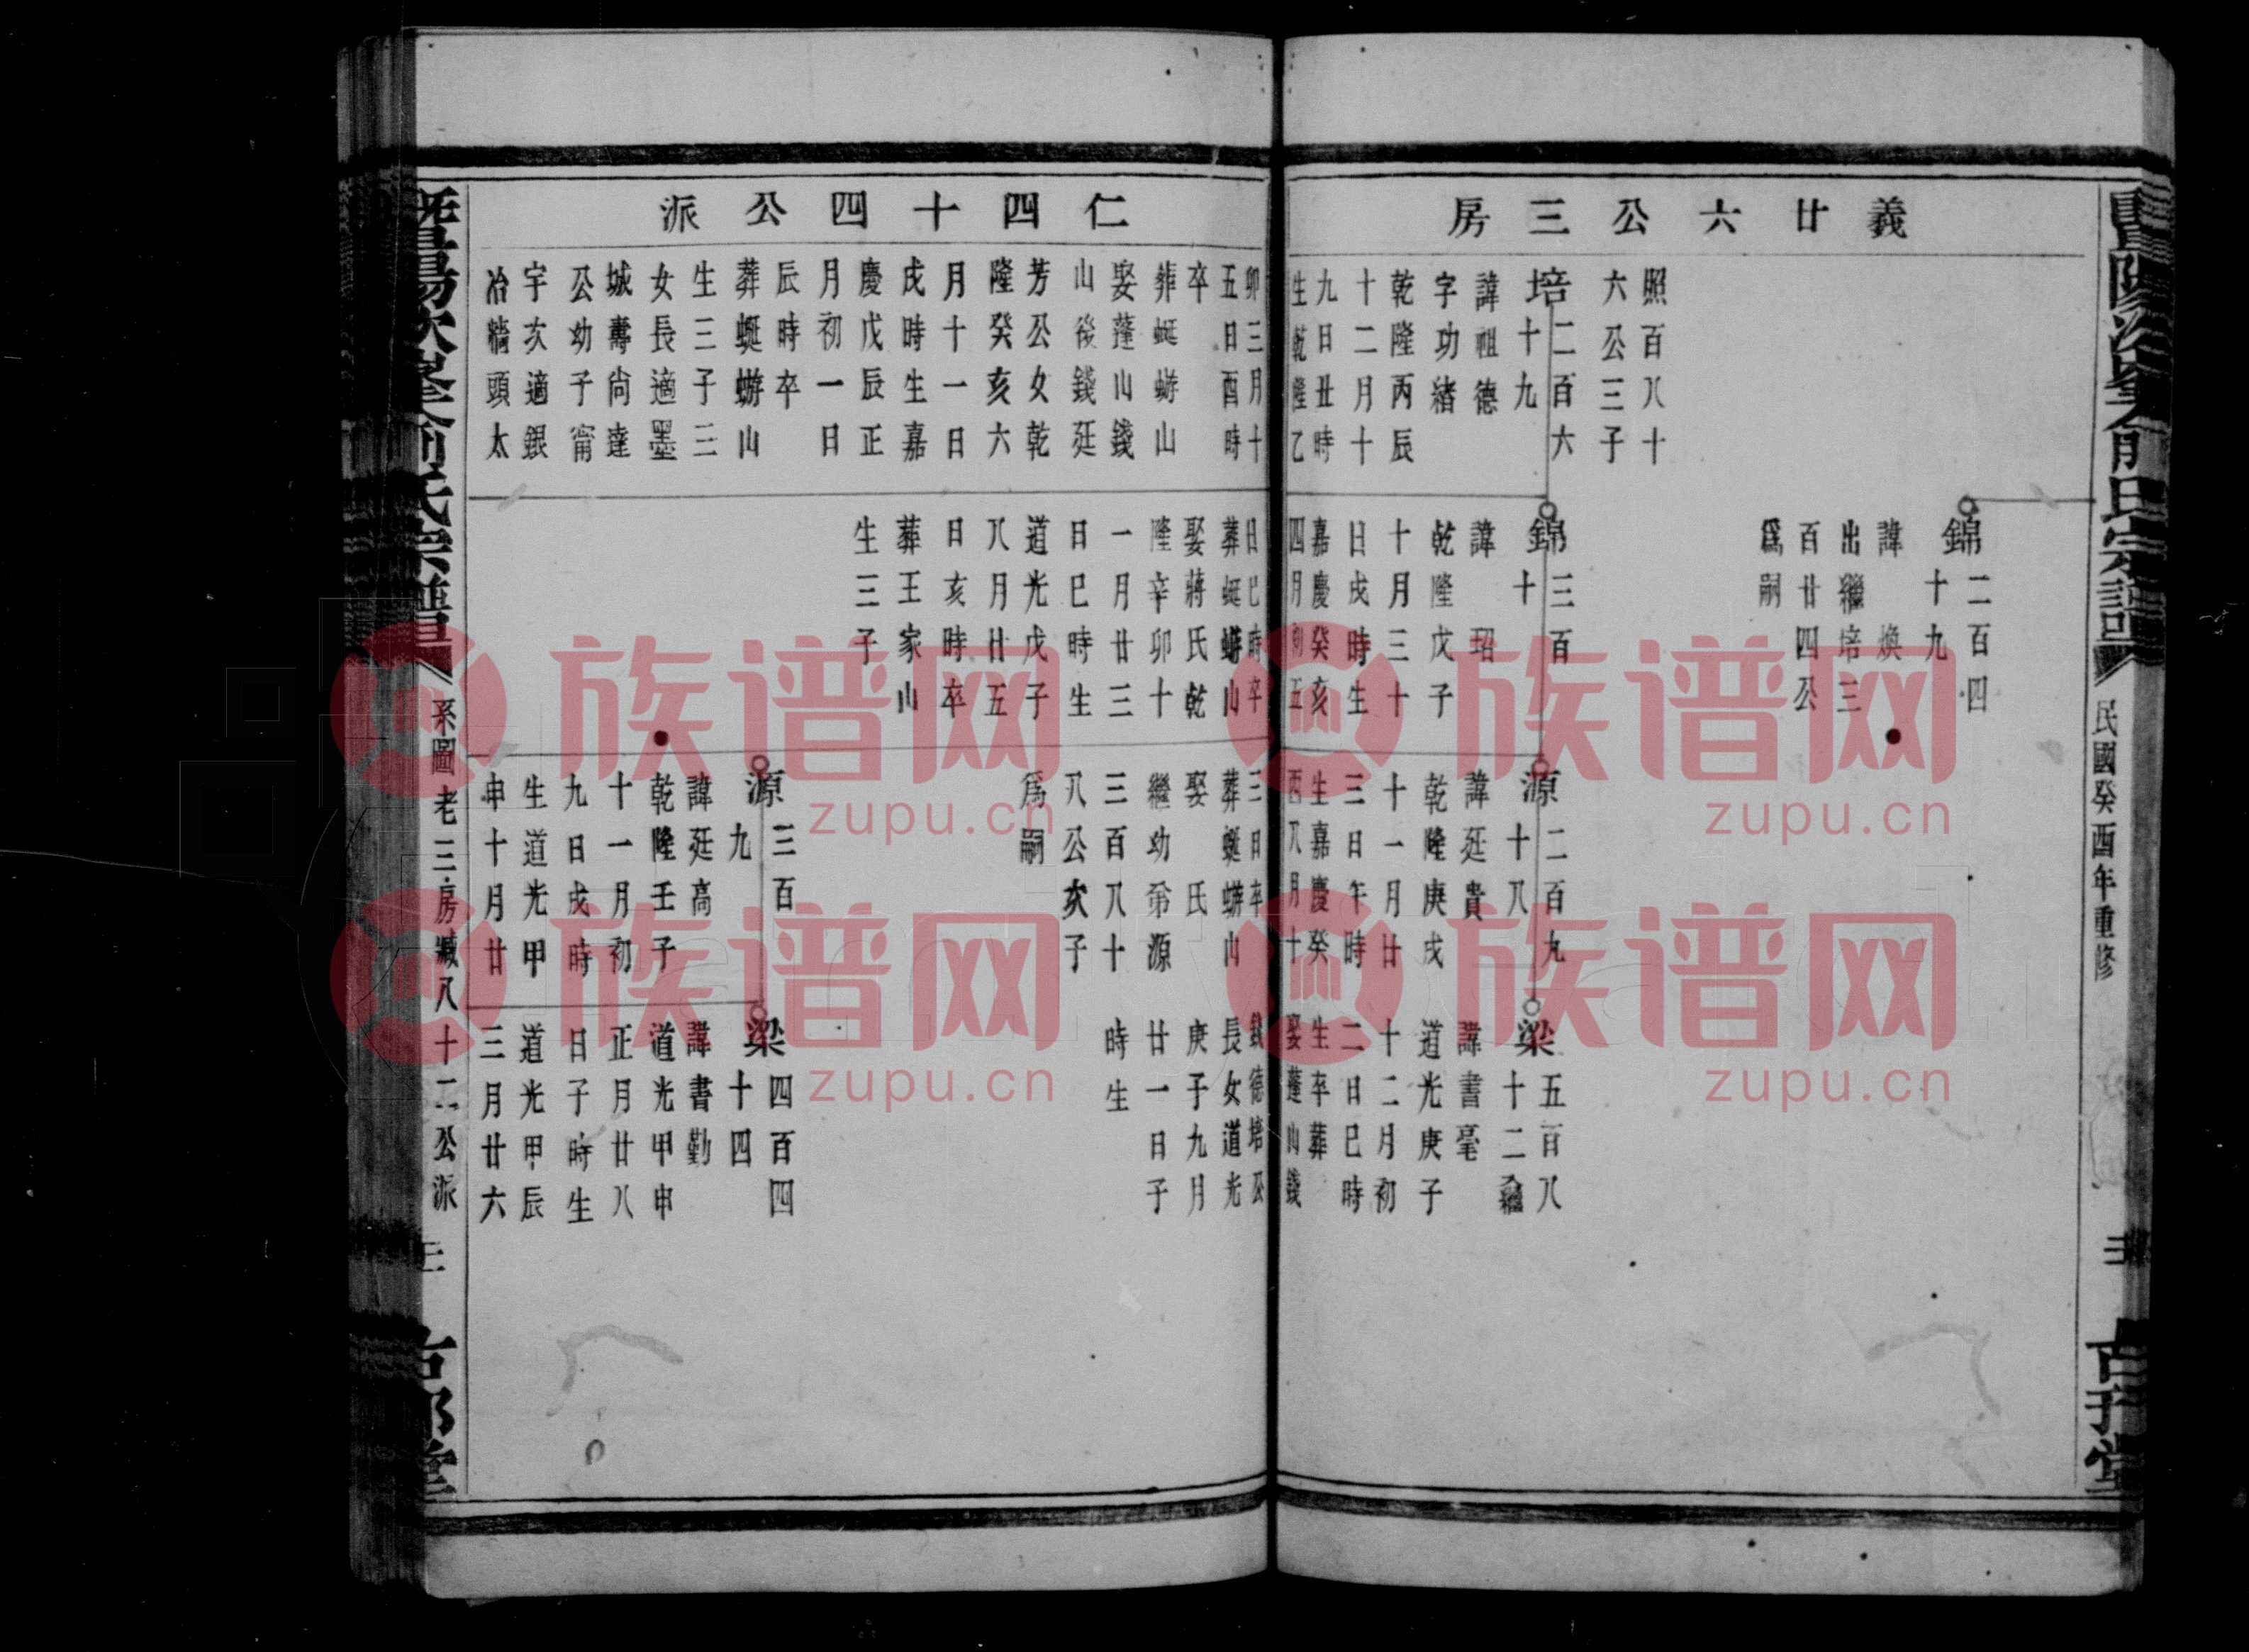 民國癸酉年重修
義廿六公三房
照百八十
六公三子
培二百六
十九
諱祖德
字功緒
乾隆丙辰
十二月十
九日丑時
生乾隆乙
卯三月十
五日酉時
卒
葬蜓蝣山
娶蓬山錢
山後錢廷
芳公女乾
隆癸亥六
月十一日
戌時生嘉
慶戊辰正
月初一日
辰時卒
葬蜓蝣山
生三子三
女長適墨
城壽尚達
公幼子甯
宇次適銀
冶牆頭太
仁四十四公派
錦二百四
十九
諱煥
出繼培三
百廿四公
爲嗣
錦三百
十
諱玿
乾隆戊子
十月三十
日戌時生
嘉慶癸亥
四月初五
日巳時卒
葬蜓蝣山
娶蔣氏乾
隆辛卯十
一月廿三
日巳時生
道光戊子
八月廿五
日亥時卒
葬王家山
生三子
源二百九
十八
諱延貴
乾隆庚戌
十一月廿
三日午時
生嘉慶癸
酉八月十
三日卒
葬蜓蝣山
娶 氏
繼功爺源
三百八十
八公次子
爲嗣
源三百
九
諱延高
乾隆壬子
十一月初
九日戌時
生道光甲
申十月廿
梁五百八
十二繼
諱書毫
道光庚子
十二月初
二日巳時
生卒葬
娶蓬山錢
錢德培公
長女道光
庚子九月
廿一日子
時生
梁四百四
十四
諱書勤
道光甲申
正月廿八
日子時生
道光甲辰
三月廿六
系圖老三房臧八十二公派
三
族谱网
zupu.cn
族谱网
zupu.cn
族谱网
zupu.cn
族谱网
zupu.cn